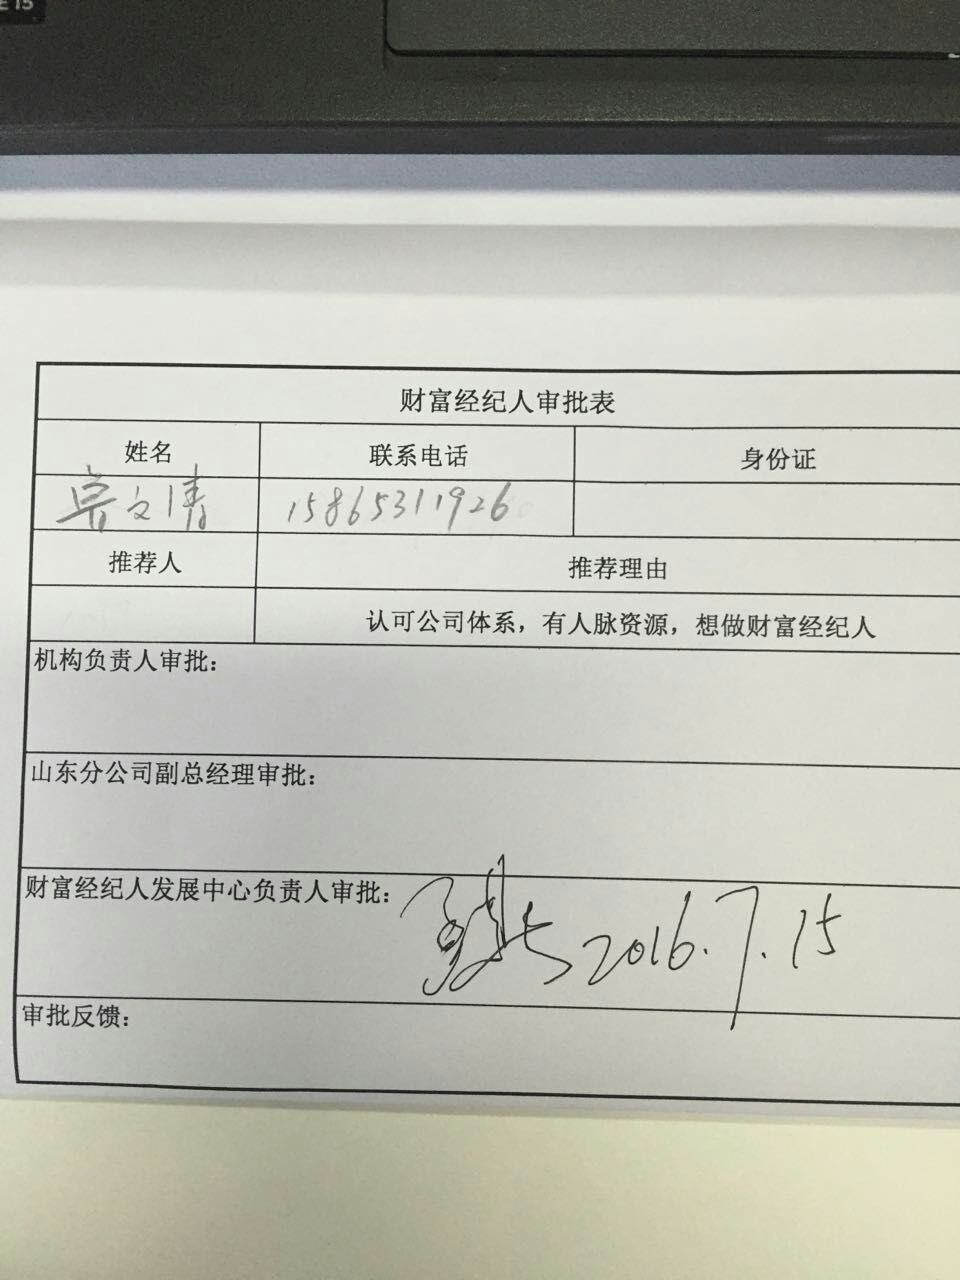 E 15
财富经纪人审批表
姓名 联系电话 身份证
文清 15865311926
推荐人 推荐理由
认可公司体系，有人脉资源，想做财富经纪人
机构负责人审批：
山东分公司副总经理审批：
财富经纪人发展中心负责人审批： 2016.7.15
审批反馈：